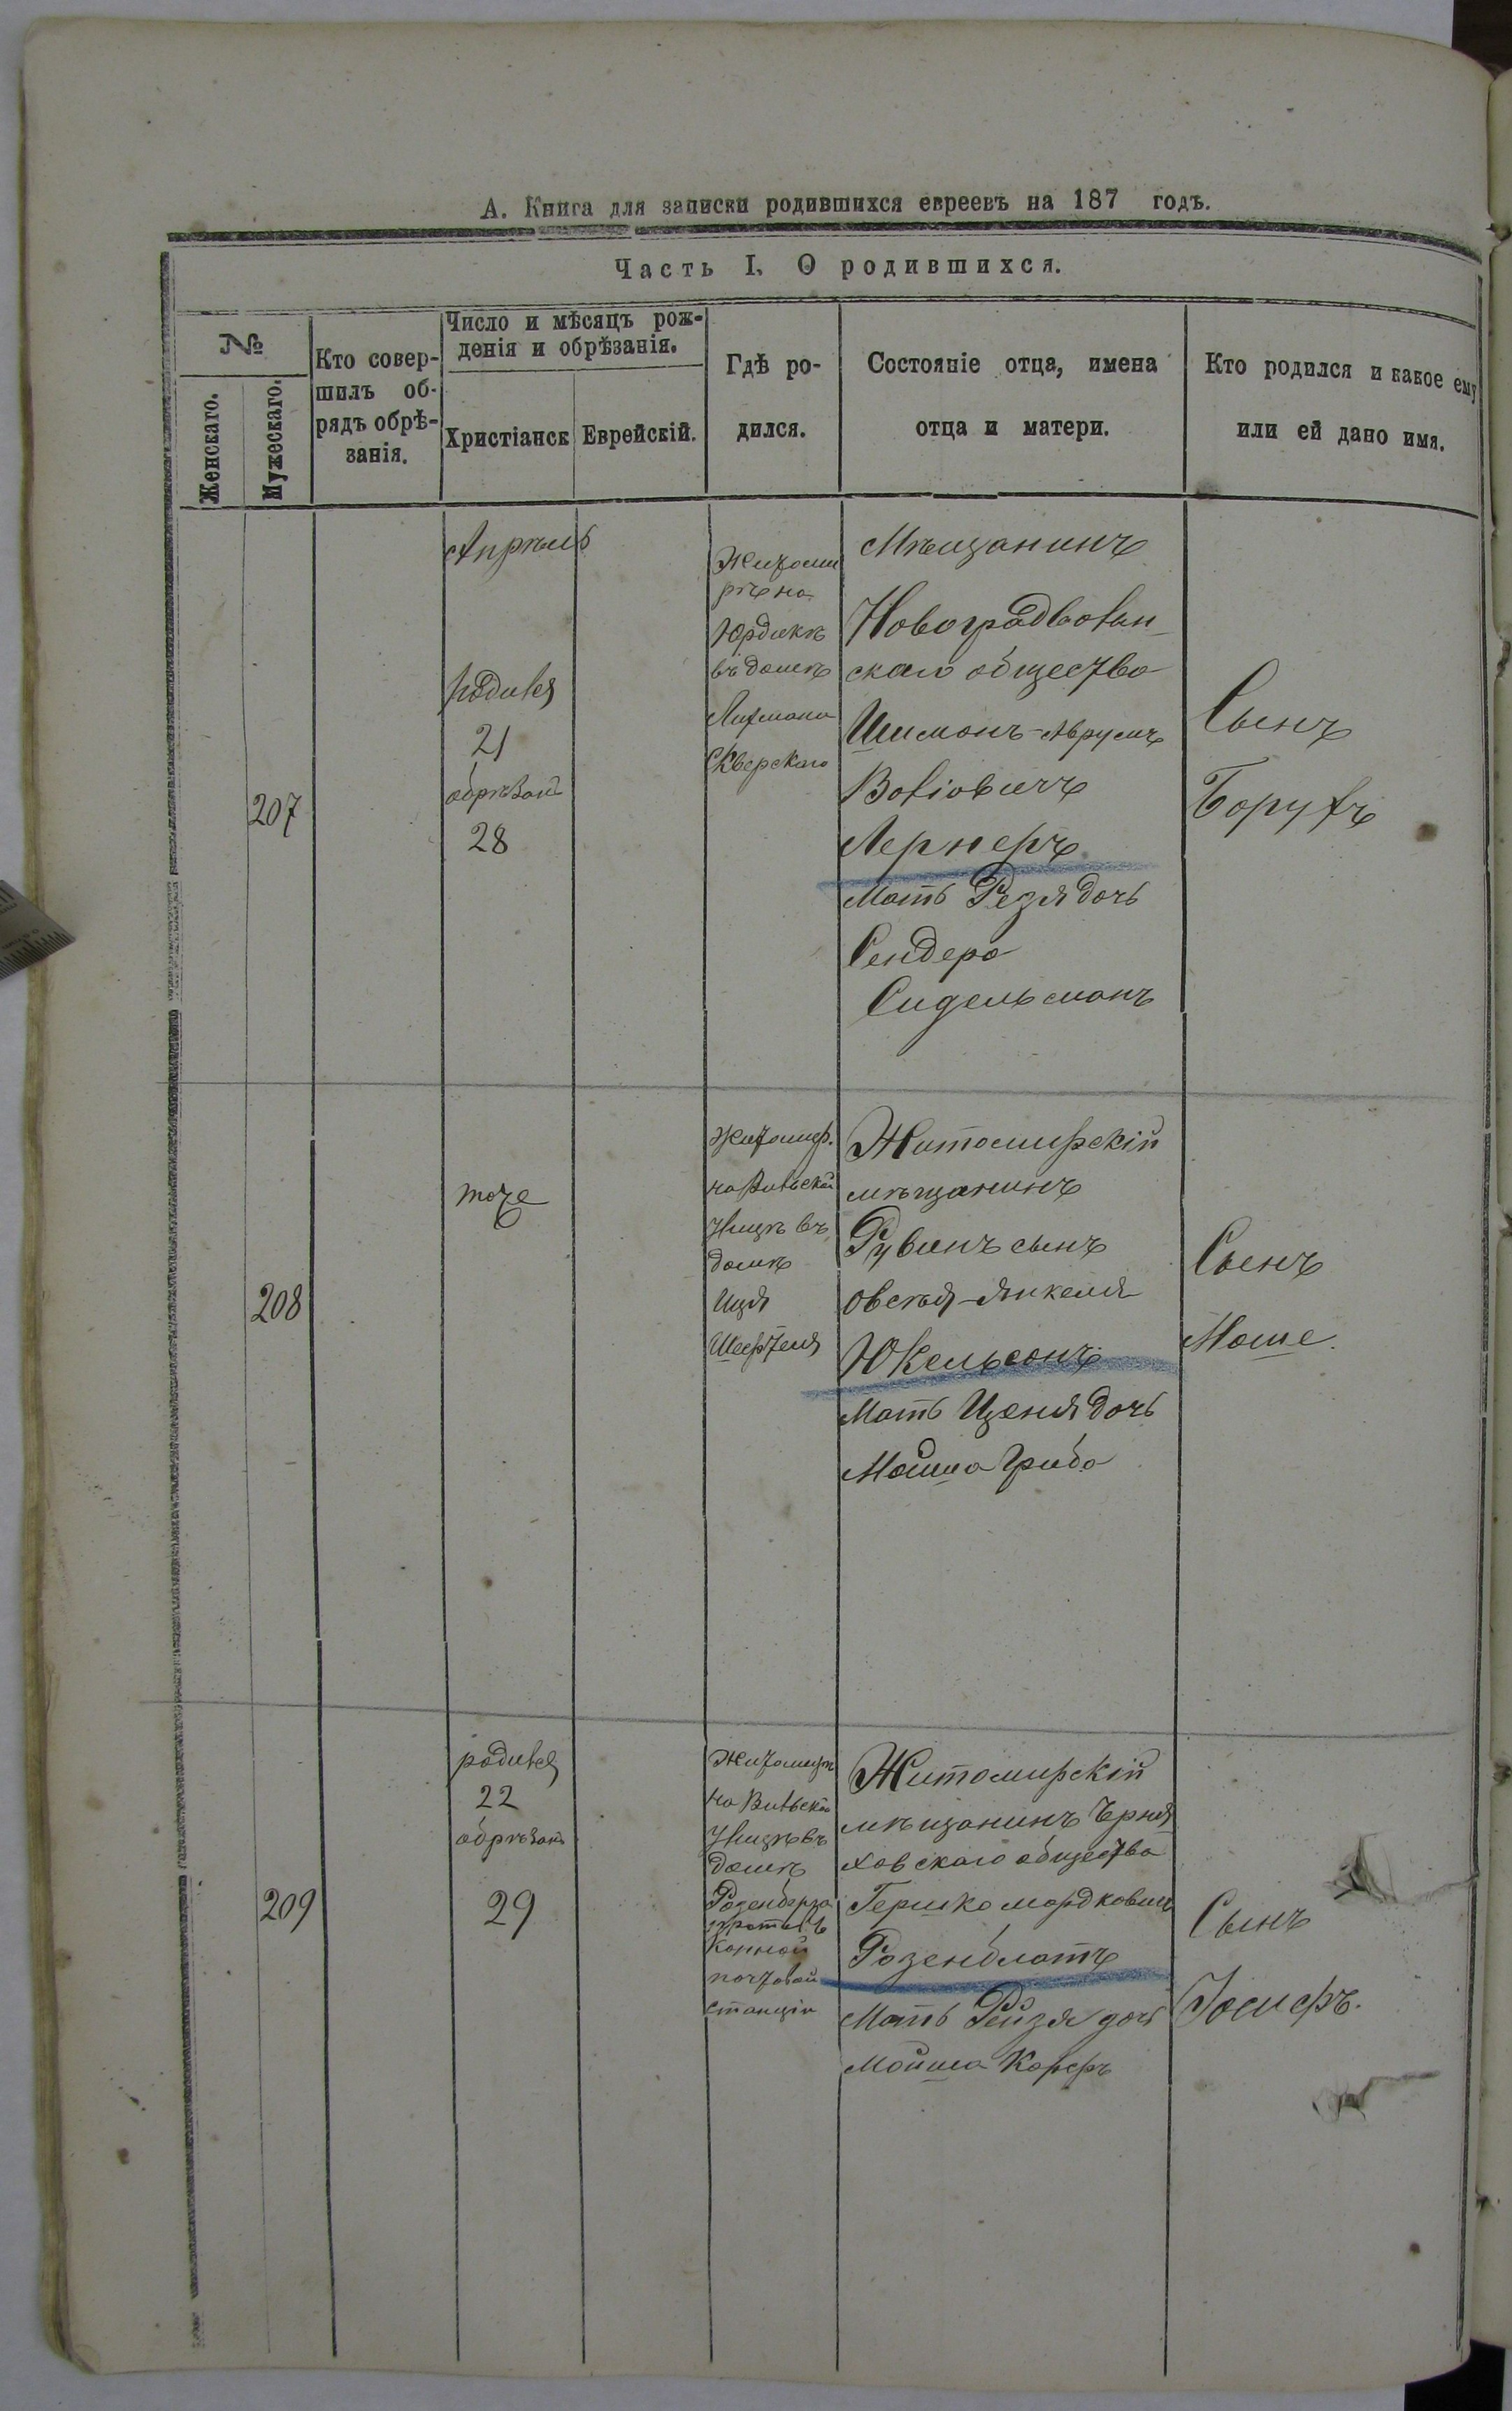 А. Книга для записки родившихся евреевъ на 187 годъ.
Часть I. О родившихся.
№
Женскаго.
Мужескаго.
Кто совер-
шилъ об-
рядъ обрѣ-
занія.
Число и мѣсяцъ рож-
денія и обрѣзанія.
Христіанск
Еврейскій.
Гдѣ ро-
дился.
Состояніе отца, имена
отца и матери.
Кто родился и какое ему
или ей дано имя.
207
Апрѣль
родился
21
обрѣзанъ
28
Житоми
рѣ на
Юрдикѣ
въ домѣ
Лифмана
Сквeрскаго
Мѣщанинъ
Новоградволын
скаго общества
Шимонъ-Аврумъ
Волѳовичъ
Лернеръ
Мать Рейзя дочь
Сендера
Сидельманъ
Сынъ
Борухъ
208
тоже
Житомир.
на Вильской
Улицѣ въ
домѣ
Иця
Шефтеля
Житомирскій
мѣщанинъ
Рувинъ сынъ
Овсѣя-Янкеля
Юкельсонъ
Мать Ценя дочь
Мойша Гриба
Сынъ
Моше.
209
родился
22
обрѣзанъ
29
Житомирѣ
на Вильской
Улицѣ въ
домѣ
Розенберга
противъ
Конной
почтовой
станціи
Житомирскій
мѣщанинъ Черня
ховскаго общества
Гершко Мордковичъ
Розенблатъ
Мать Рейзя дочь
Мойша
Сынъ
Іосифъ.